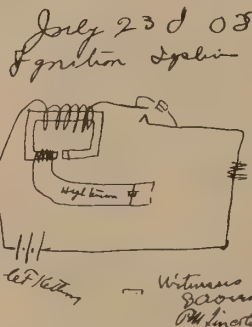 July 23d 08
Ignition System
High tension
C F Kettering
Witnesses